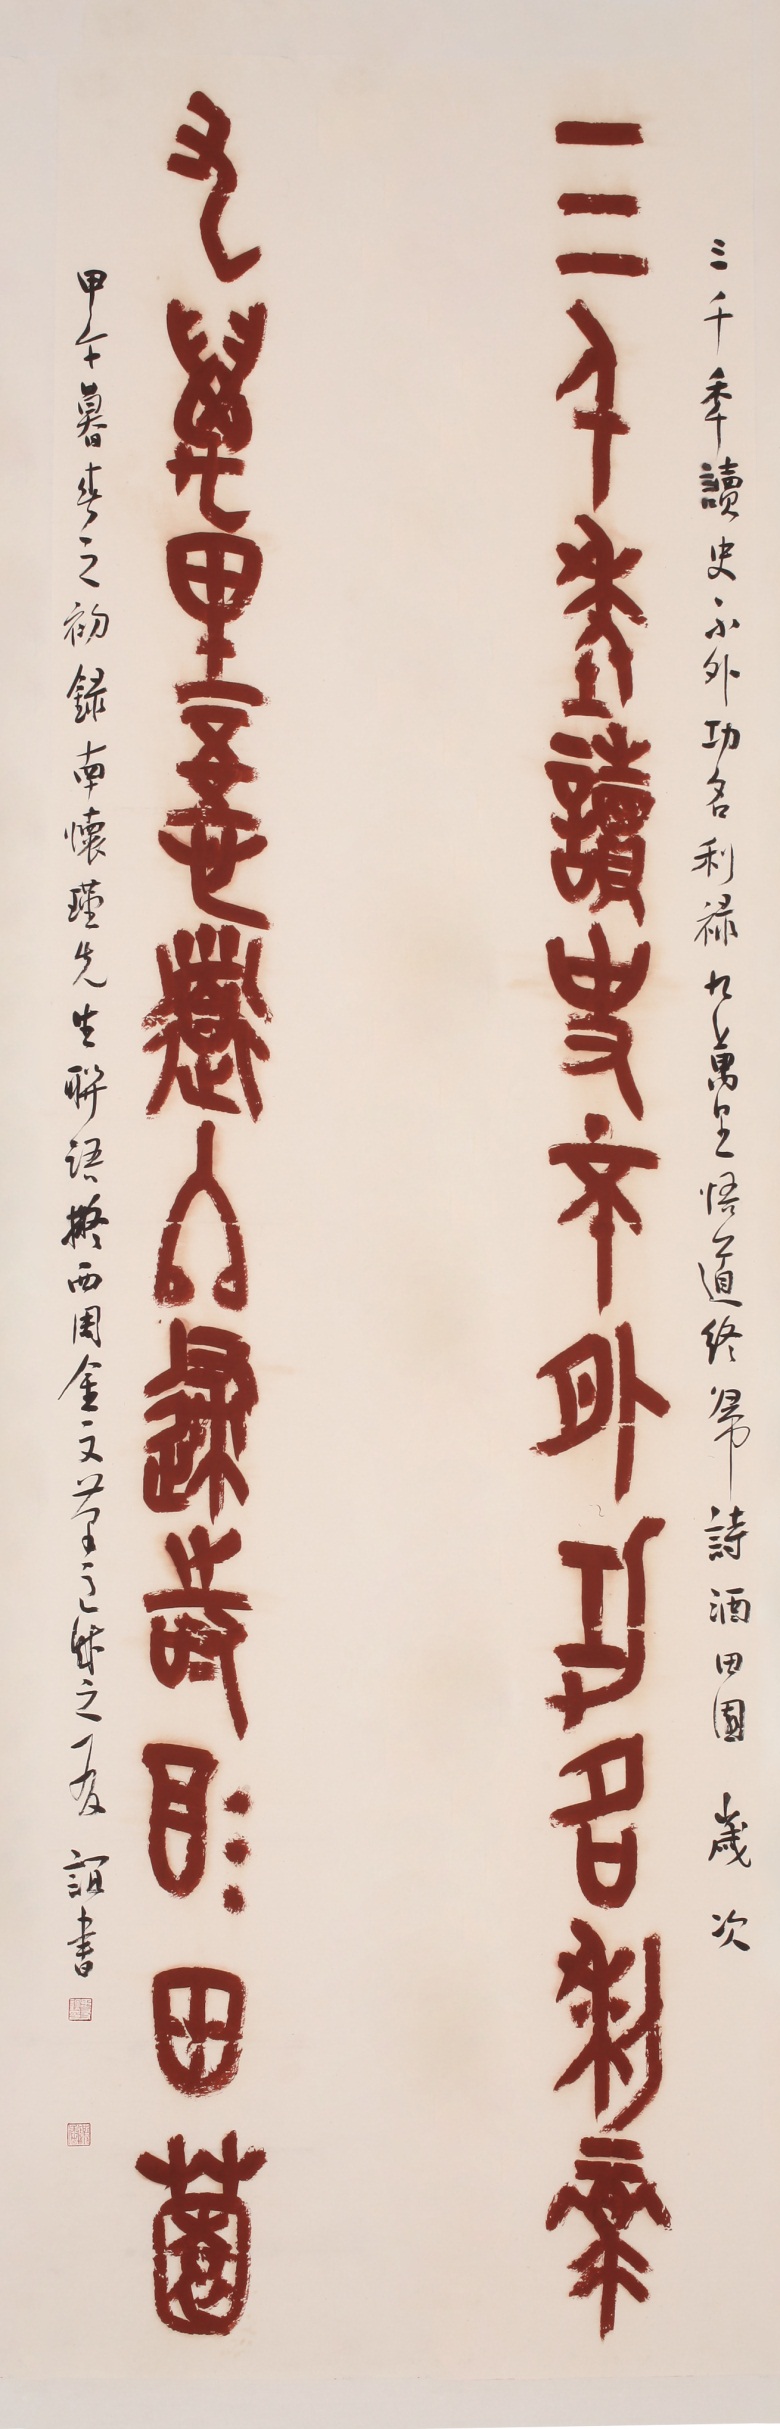 三千秊讀史不外功名利祿九萬里悟道終歸詩酒田園 歲次
三千年讀史不外功名利祿
九萬里悟道終歸詩酒田園
甲午暮春之初錄南懷瑾先生聯語擬西周金文筆意成之 誼書